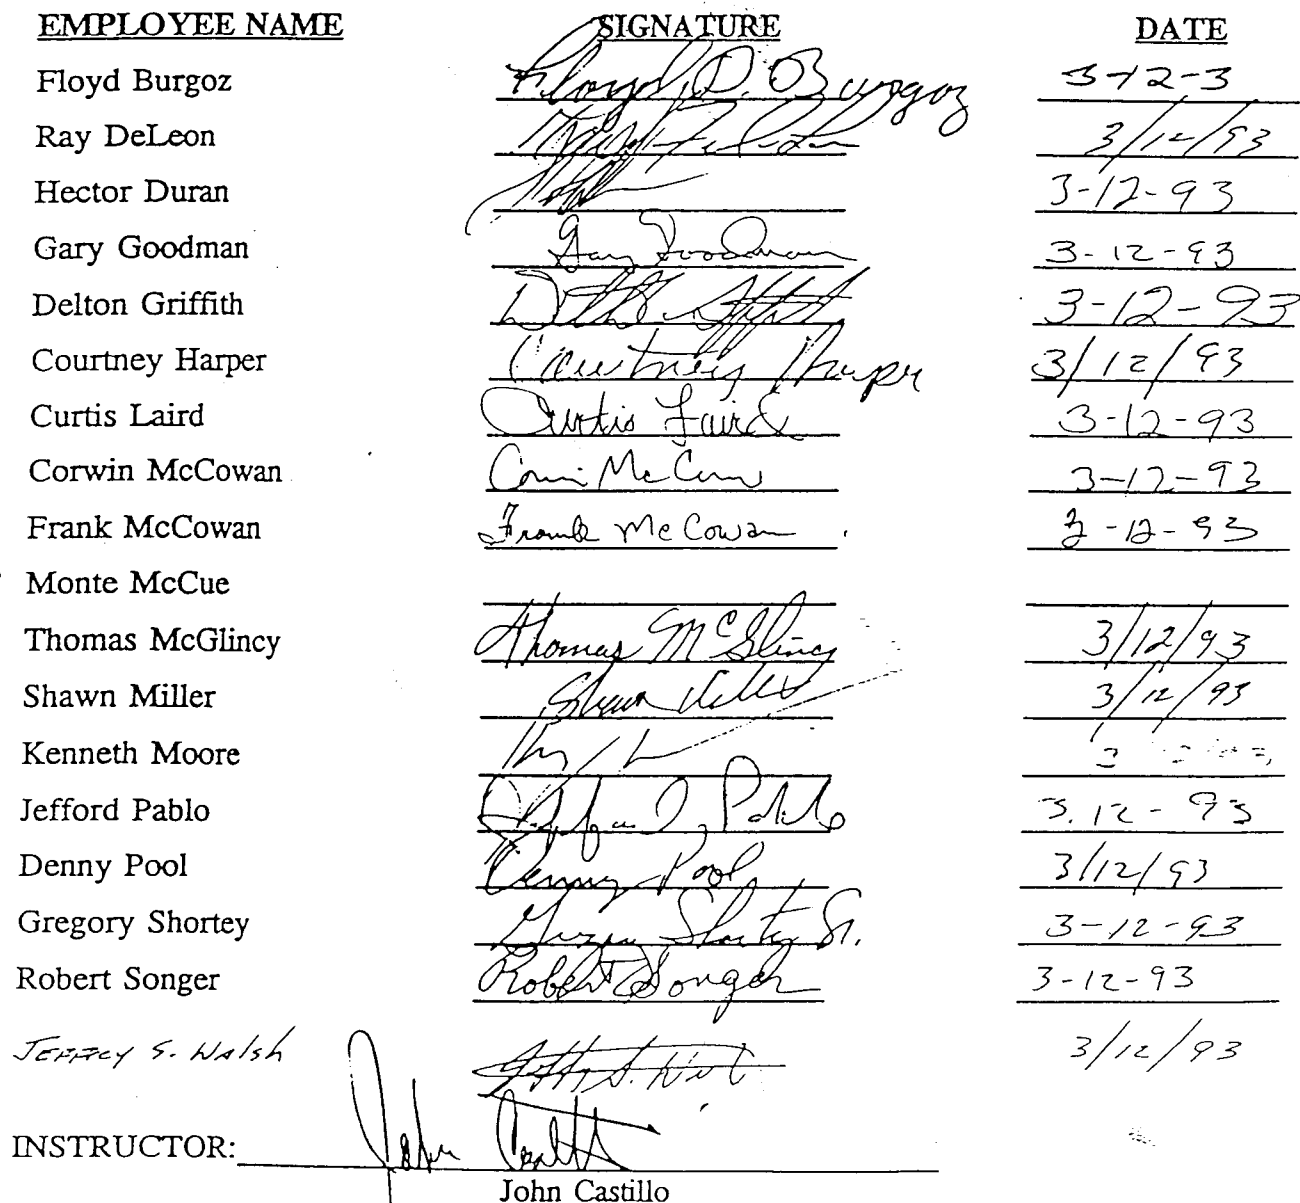 EMPLOYEE NAME SIGNATURE DATE
Floyd Burgoz Floyd D. Burgoz 3-12-3
Ray DeLeon 3/12/93
Hector Duran 3-12-93
Gary Goodman Gary Goodman 3-12-93
Delton Griffith 3-12-93
Courtney Harper Courtney Harper 3/12/93
Curtis Laird Curtis Laird 3-12-93
Corwin McCowan 3-12-93
Frank McCowan Frank McCowan 3-12-93
Monte McCue
Thomas McGlincy Thomas McGlincy 3/12/93
Shawn Miller Shawn Miller 3/12/93
Kenneth Moore
Jefford Pablo 3.12-93
Denny Pool Denny Pool 3/12/93
Gregory Shortey Gregory Shortey Sr. 3-12-93
Robert Songer Robert Songer 3-12-93
Jeffrey S. Walsh 3/12/93
INSTRUCTOR: John Castillo
John Castillo